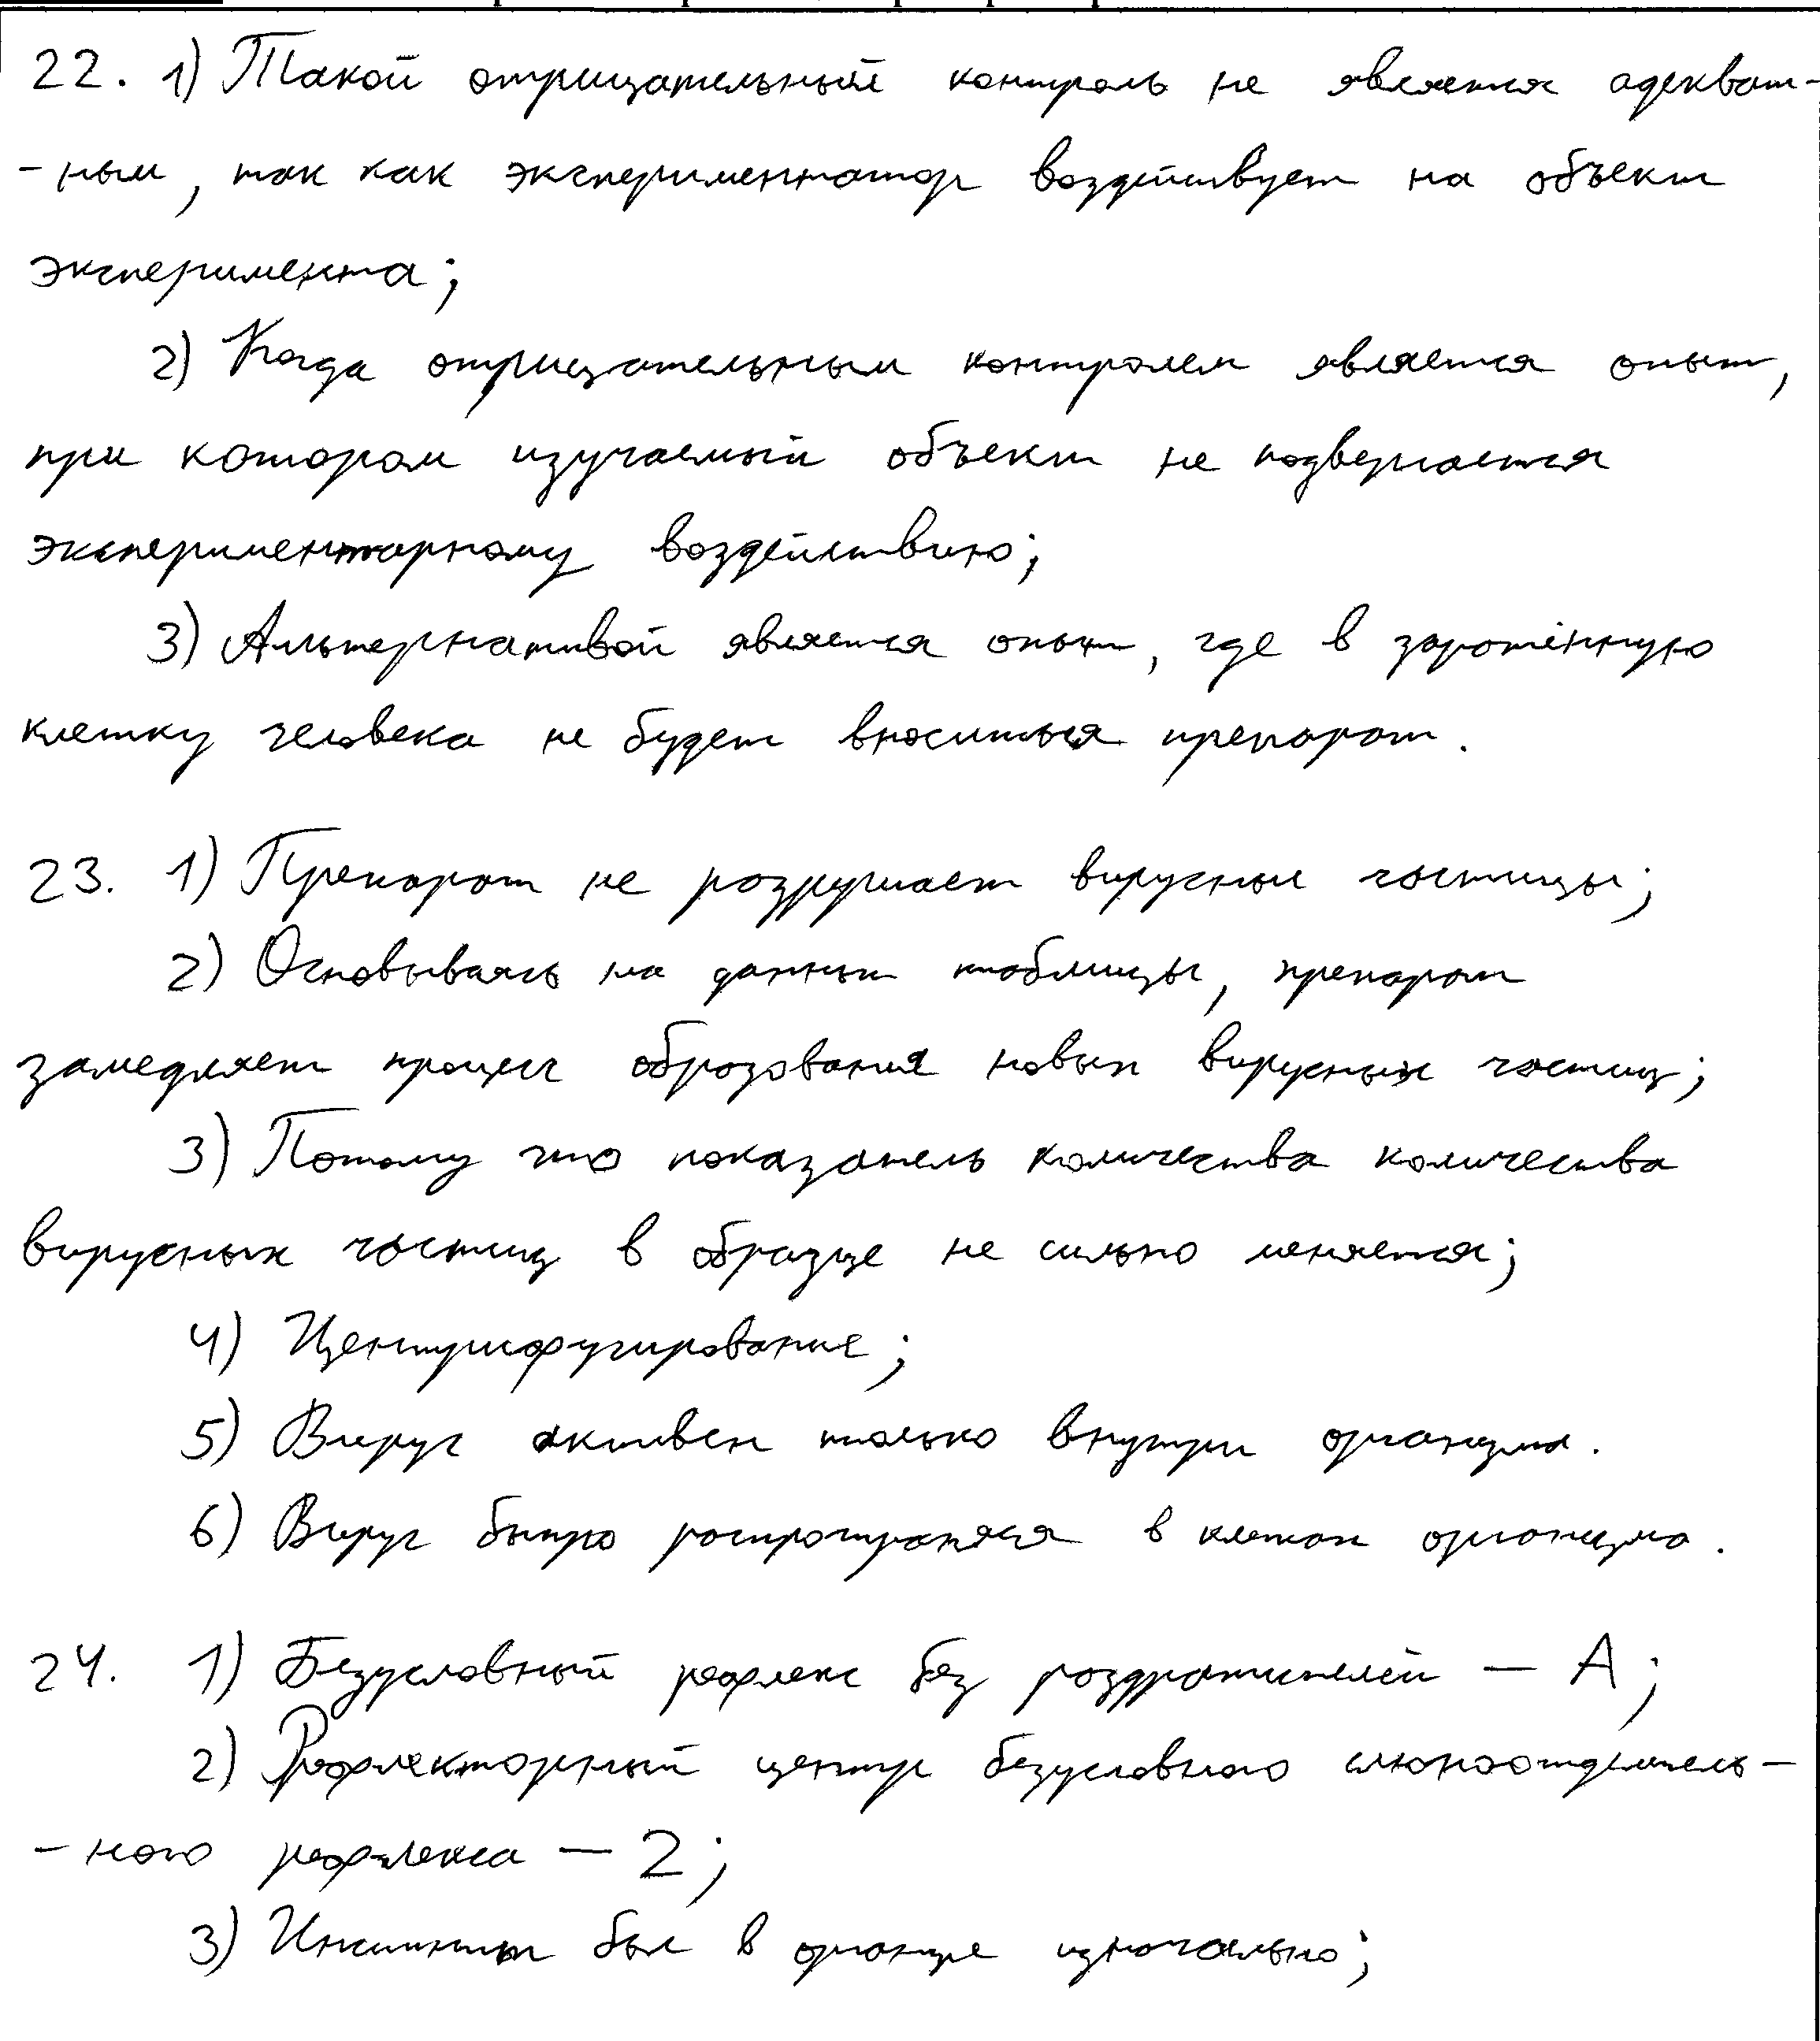 22. 1) Такой отрицательный контроль не является адекват-
-ным, так как экспериментатор воздействует на объект
эксперимента;
2) Когда отрицательным контролем является опыт,
при котором изучаемый объект не подвергается
экспериментарному воздействию;
3) Альтернативой является опыт, где в заражённую
клетку человека не будет вноситься препарат.
23. 1) Препарат не разрушает вирусные частицы;
2) Основываясь на данных таблицы, препарат
замедляет процесс образования новых вирусных частиц;
3) Потому что показатель количества количества
вирусных частиц в образце не сильно меняется;
4) Центрифугирование;
5) Вирус активен только внутри организма.
6) Вирус быстро распространяется в клетках организма.
24. 1) Безусловный рефлекс без раздражителей – А;
2) Рефлекторный центр безусловного слюноотделитель-
-ного рефлекса – 2;
3) Инстинкт был в изначально;